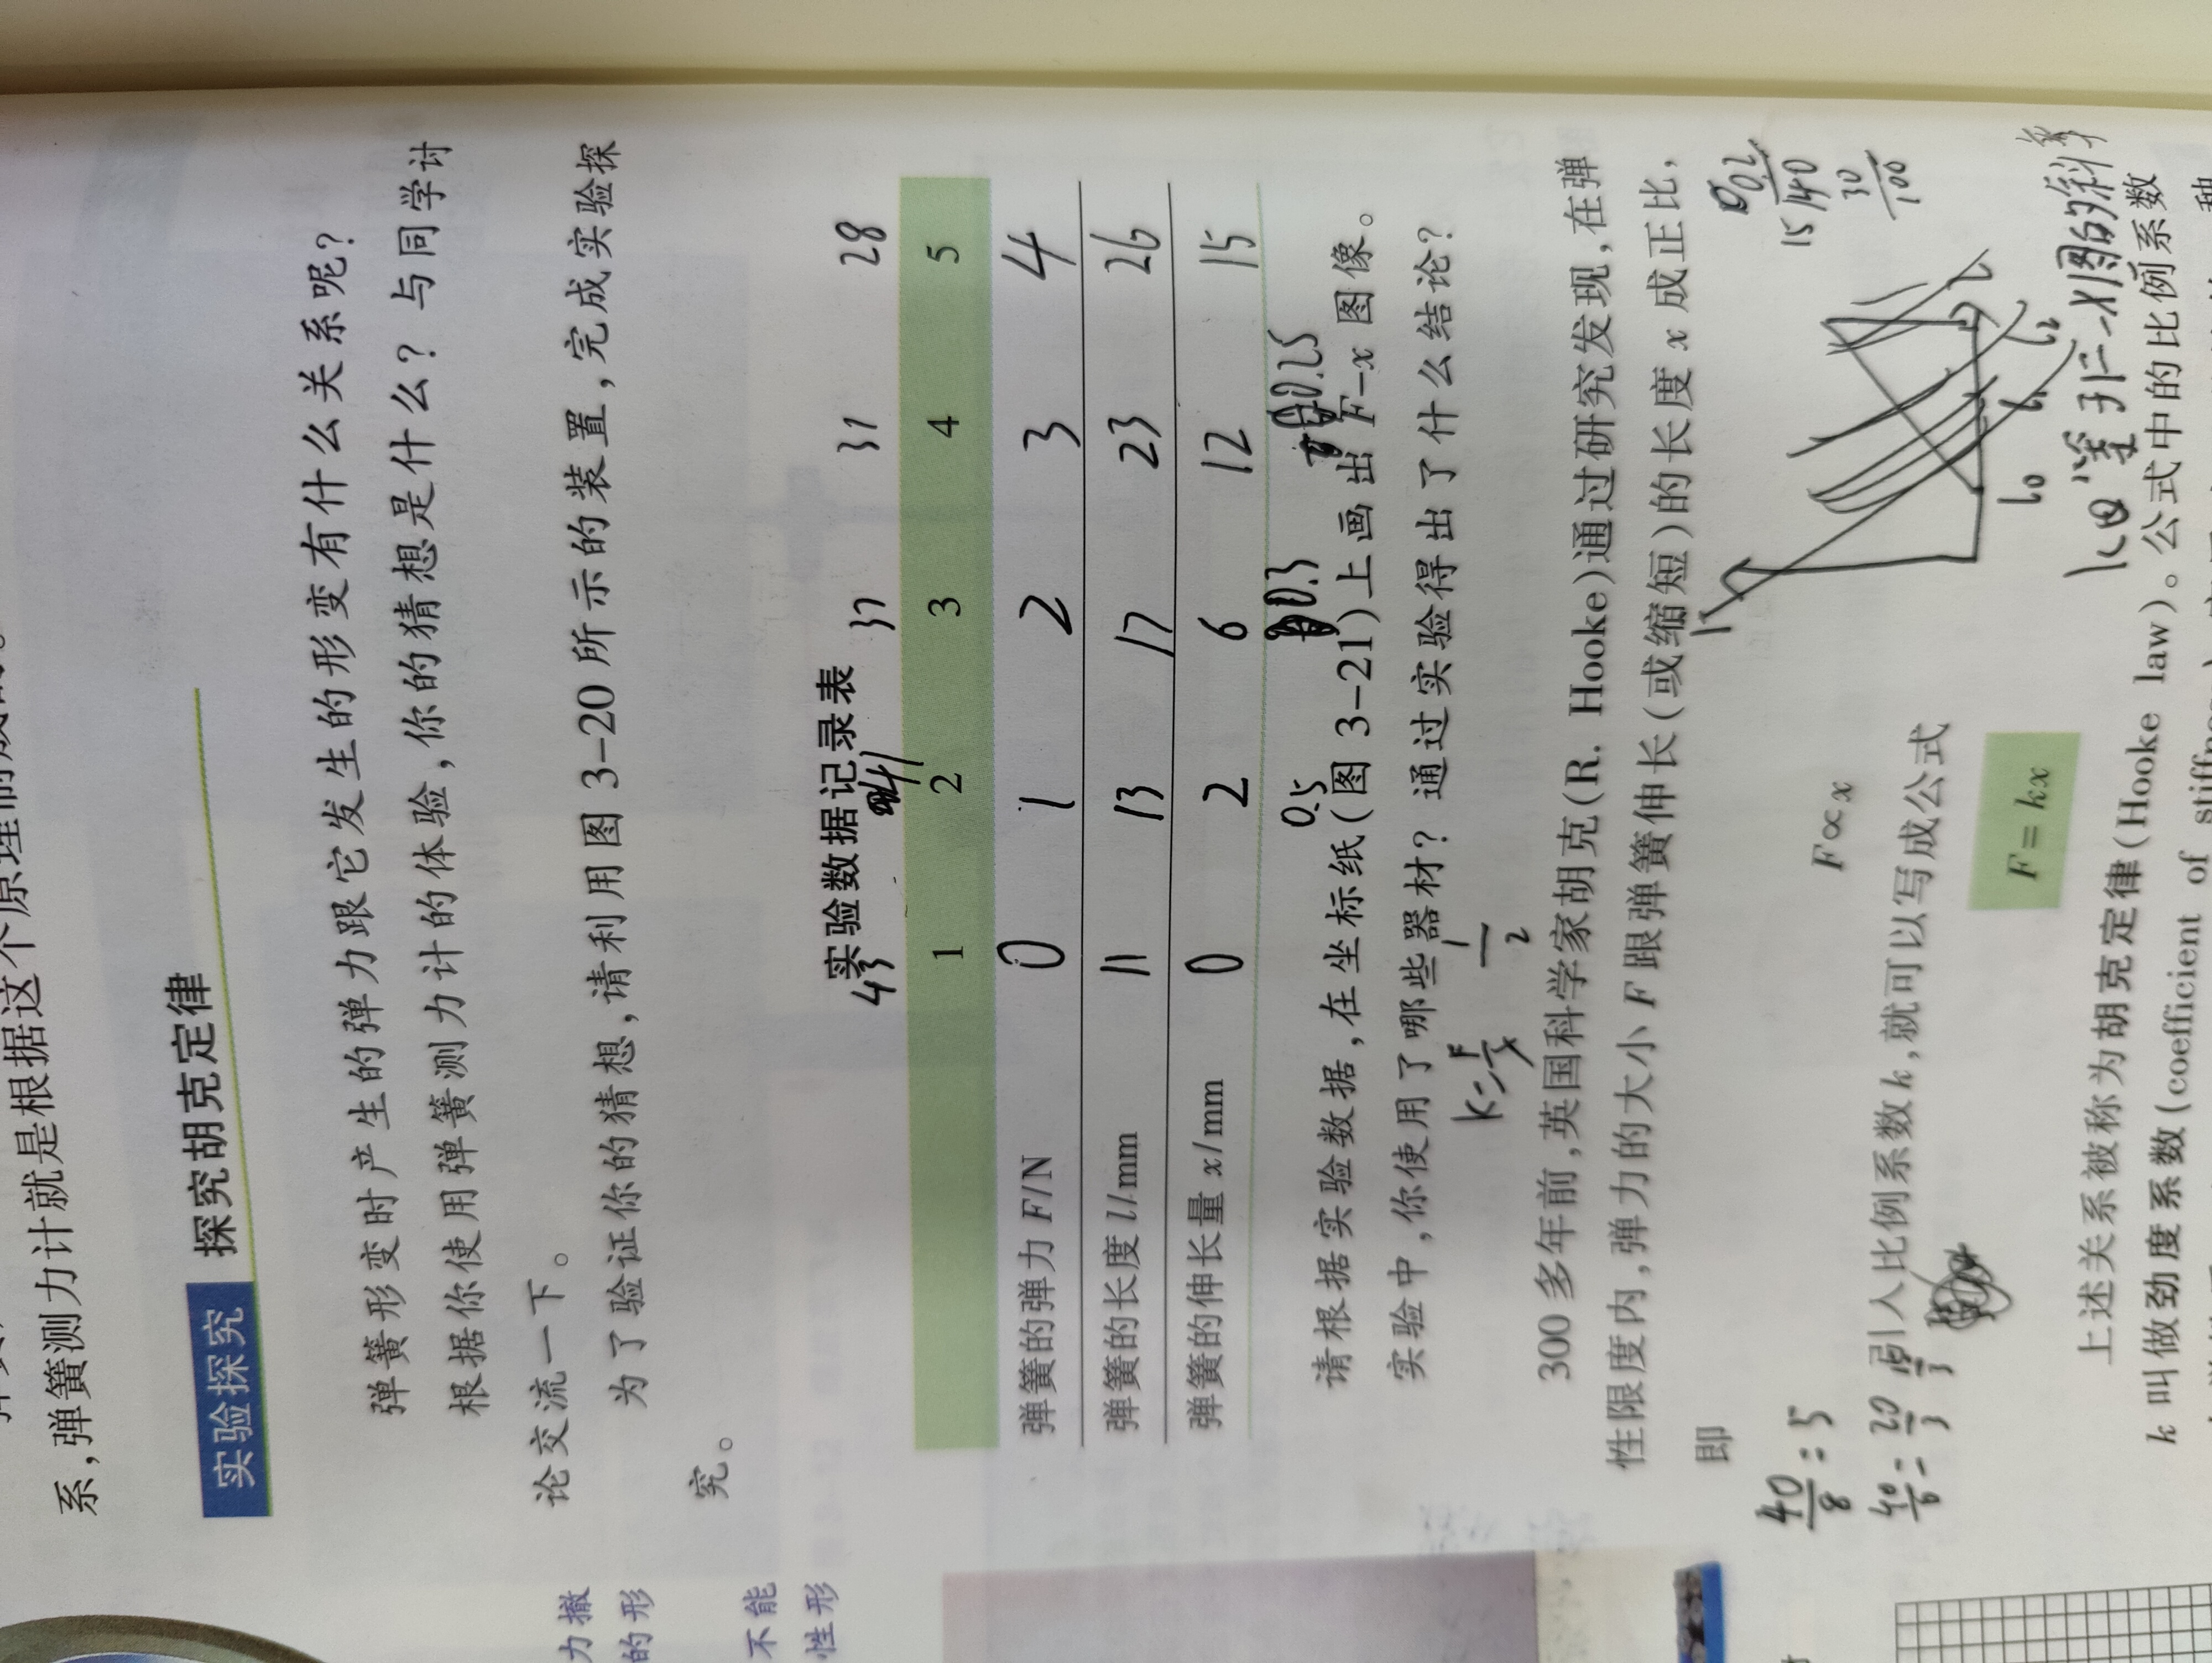 系,弹簧测力计就是根据这个原理制成的。
实验探究 探究胡克定律
弹簧形变时产生的弹力跟它发生的形变有什么关系呢?
根据你使用弹簧测力计的体验,你的猜想是什么? 与同学讨
论交流一下。
为了验证你的猜想,请利用图 3-20 所示的装置,完成实验探
究。
实验数据记录表
43 41 37 31 28
1 2 3 4 5
弹簧的弹力 F/N 0 1 2 3 4
弹簧的长度 l/mm 11 13 17 23 26
弹簧的伸长量 x/mm 0 2 6 12 15
0.5 0.3 0.25
请根据实验数据,在坐标纸(图 3-21)上画出 F-x 图像。
实验中,你使用了哪些器材? 通过实验得出了什么结论?
k=F/x 1/2
300 多年前,英国科学家胡克(R. Hooke)通过研究发现,在弹
性限度内,弹力的大小 F 跟弹簧伸长(或缩短)的长度 x 成正比,
即
0.2
15/40
30
100
F∝x
40/8=5
引入比例系数 k,就可以写成公式
40/6=20/3
F = kx
l0 l1 l2
F-x图的斜率
上述关系被称为胡克定律(Hooke law)。公式中的比例系数
k 叫做劲度系数(coefficient of stiffness)
力撤
的形
不能
性形